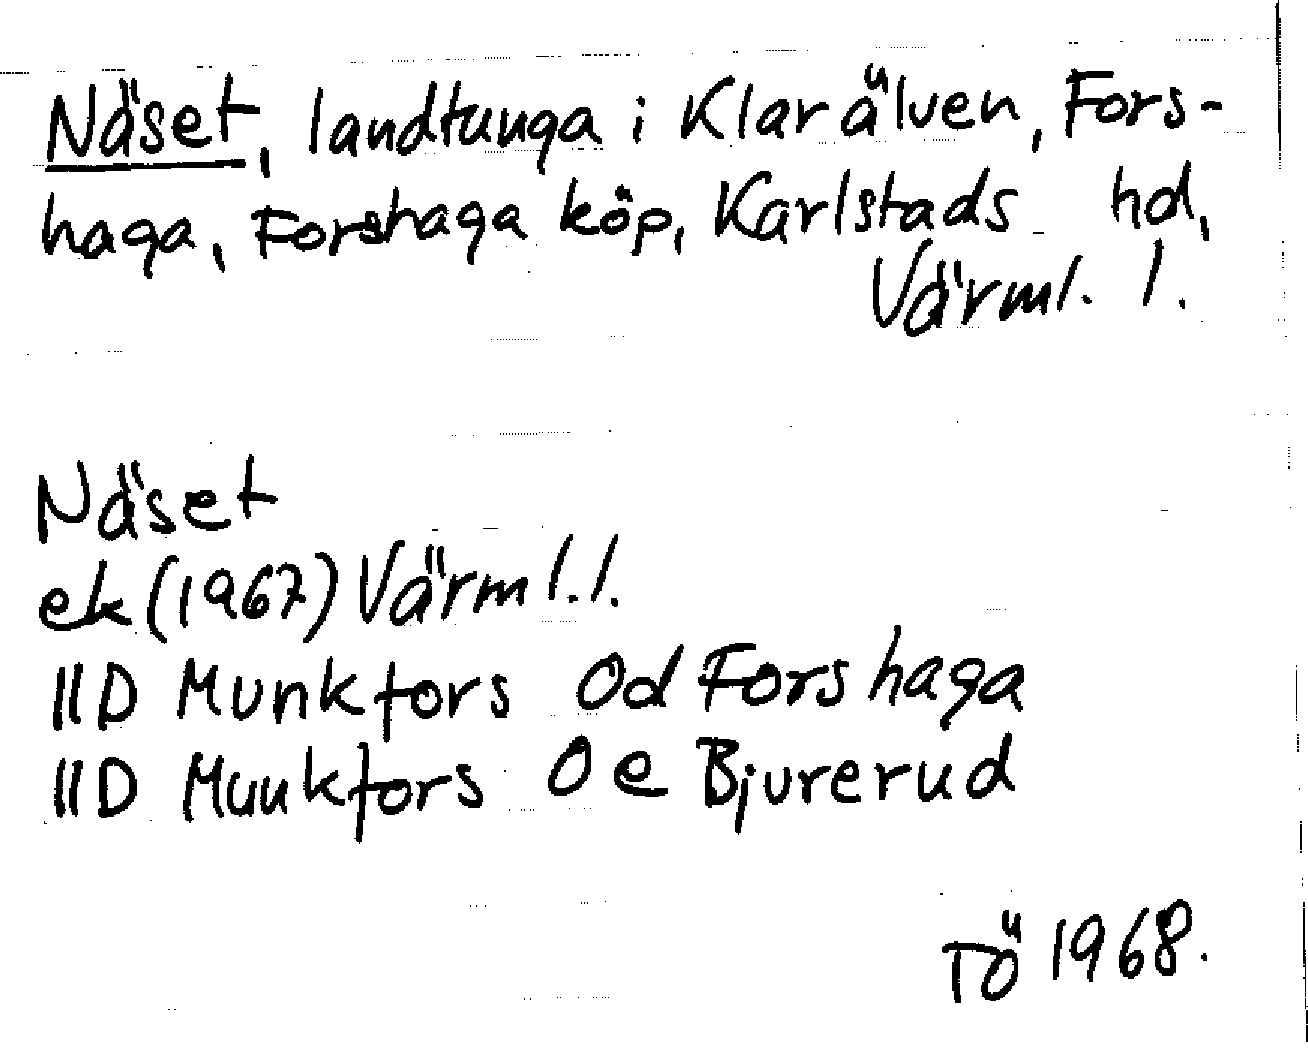 Näset, landtunga i Klarälven, Fors-
haga, Forshaga köp, Karlstads hd,
Värml. l.
Näset
ek (1967) Värml.l.
11D Munkfors 0d Forshaga
11D Munkfors 0e Bjurerud
TÖ 1968.